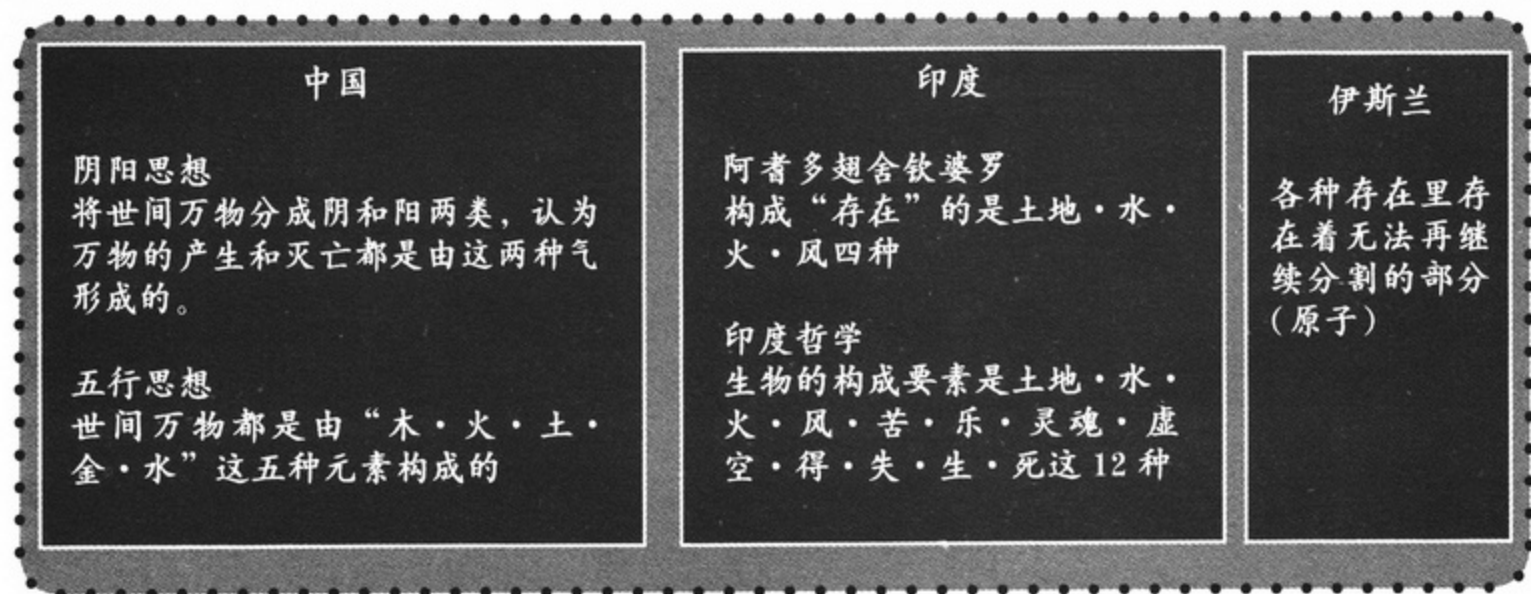 中国
阴阳思想
将世间万物分成阴和阳两类，认为
万物的产生和灭亡都是由这两种气
形成的。
五行思想
世间万物都是由“木·火·土·
金·水”这五种元素构成的
印度
阿耆多翅舍钦婆罗
构成“存在”的是土地·水·
火·风四种
印度哲学
生物的构成要素是土地·水·
火·风·苦·乐·灵魂·虚
空·得·失·生·死这12种
伊斯兰
各种存在里存
在着无法再继
续分割的部分
（原子）